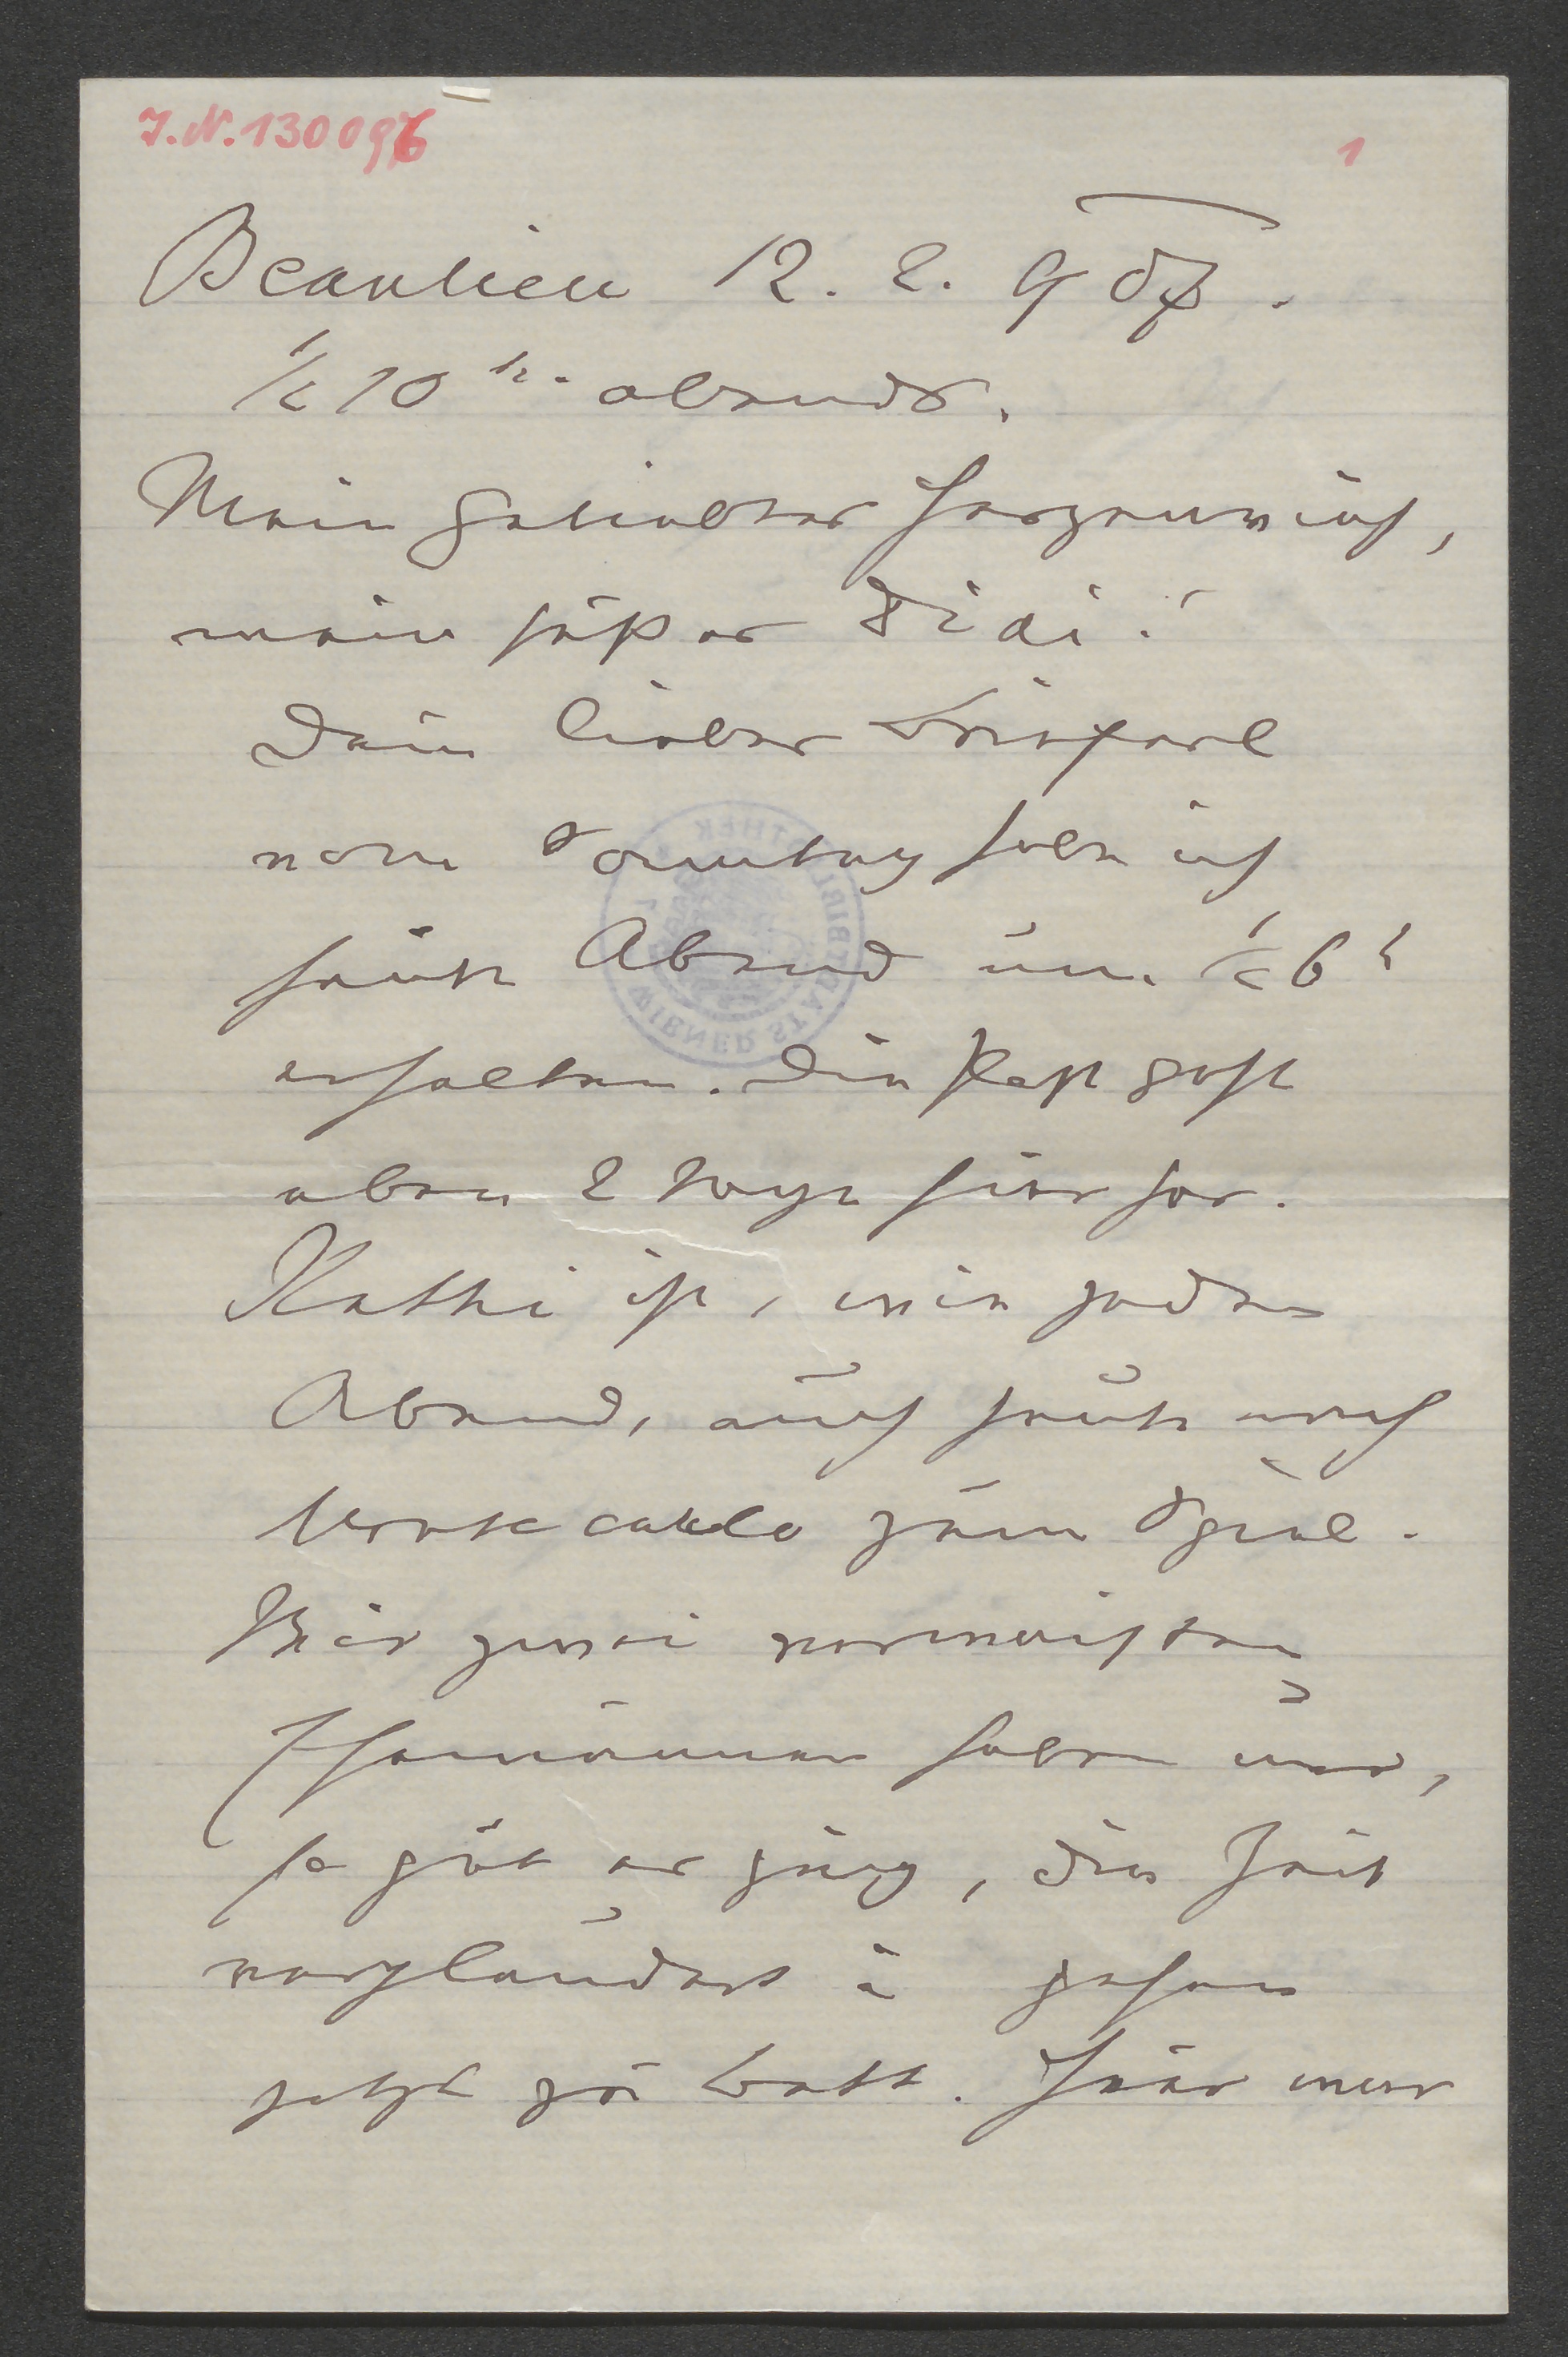 I.N. 130096
1
Beaulieu 12. 2. 907.
1/2 10 h. abends.
Mein geliebter Herzensviech,
mein süßer Didi!
Dein lieber Brieferl
vom Sonntag habe ich
heute Abend um 1/2 6 h
erhalten. Die Post geht
eben 2 Tage hierher.
Kathi ist, wie jeden
Abend, auch heute nach
Monte carlo zum Spiel.
Wir zwei verwaisten
Ehemänner haben uns,
so gut es ging, die Zeit
verplaudert u gehen
jetzt zu Bett. Hier war